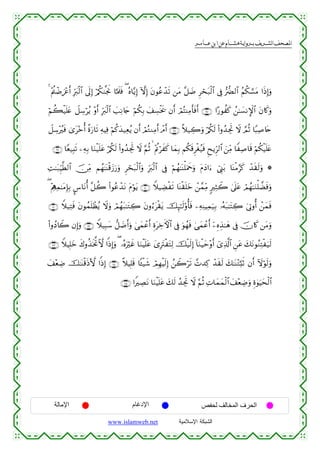 المصحف الشريف برواية هشام عن ابن عامر
وَإِذَا مَسَّكُمُ ٱلضُّرُّ فِى ٱلْبَحْرِ ضَلَّ مَن تَدْعُونَ إِلَّآ إِيَّاهُ ۖ فَلَمَّا نَجَّىٰكُمْ إِلَى ٱلْبَرِّ أَعْرَضْتُمْ ۚ
وَكَانَ ٱلْإِنسَٰنُ كَفُورًا أَفَأَمِنتُمْ أَن يَخْسِفَ بِكُمْ جَانِبَ ٱلْبَرِّ أَوْ يُرْسِلَ عَلَيْكُمْ
حَاصِبًا ثُمَّ لَا تَجِدُوا۟ لَكُمْ وَكِيلًا أَمْ أَمِنتُمْ أَن يُعِيدَكُمْ فِيهِ تَارَةً أُخْرَىٰ فَيُرْسِلَ
عَلَيْكُمْ قَاصِفًا مِّنَ ٱلرِّيحِ فَيُغْرِقَكُم بِمَا كَفَرْتُمْ ۙ ثُمَّ لَا تَجِدُوا۟ لَكُمْ عَلَيْنَا بِهِۦ تَبِيعًا
۞ وَلَقَدْ كَرَّمْنَا بَنِىٓ ءَادَمَ وَحَمَلْنَٰهُمْ فِى ٱلْبَرِّ وَٱلْبَحْرِ وَرَزَقْنَٰهُم مِّنَ ٱلطَّيِّبَٰتِ
وَفَضَّلْنَٰهُمْ عَلَىٰ كَثِيرٍ مِّمَّنْ خَلَقْنَا تَفْضِيلًا يَوْمَ نَدْعُوا۟ كُلَّ أُنَاسٍۭ بِإِمَٰمِهِمْ ۖ
فَمَنْ أُوتِىَ كِتَٰبَهُۥ بِيَمِينِهِۦ فَأُو۟لَٰٓئِكَ يَقْرَءُونَ كِتَٰبَهُمْ وَلَا يُظْلَمُونَ فَتِيلًا
وَمَن كَانَ فِى هَٰذِهِۦٓ أَعْمَىٰ فَهُوَ فِى ٱلْءَاخِرَةِ أَعْمَىٰ وَأَضَلُّ سَبِيلًا وَإِن كَادُوا۟
لَيَفْتِنُونَكَ عَنِ ٱلَّذِىٓ أَوْحَيْنَآ إِلَيْكَ لِتَفْتَرِىَ عَلَيْنَا غَيْرَهُۥ ۖ وَإِذًا لَّٱتَّخَذُوكَ خَلِيلًا
وَلَوْلَآ أَن ثَبَّتْنَٰكَ لَقَدْ كِدتَّ تَرْكَنُ إِلَيْهِمْ شَيْـًٔا قَلِيلًا إِذًا لَّأَذَقْنَٰكَ ضِعْفَ
ٱلْحَيَوٰةِ وَضِعْفَ ٱلْمَمَاتِ ثُمَّ لَا تَجِدُ لَكَ عَلَيْنَا نَصِيرًا
الحرف المخالف لحفص الإدغام الإمالة
الشبكة الإسلامية www.islamweb.net